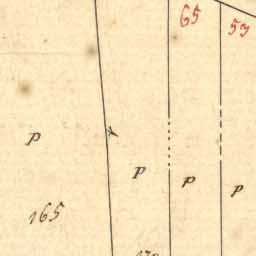 65
53
p
p
p
p
165